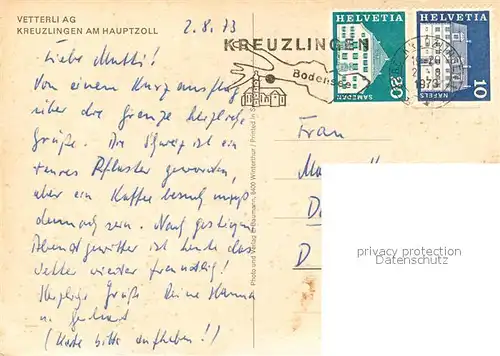 VETTERLI AG
KREUZLINGEN AM HAUPTZOLL
2.8.73
Liebe Mutti!
Von einem Kurzausflug
über die Grenze herzliche
Grüße. Die Schweiz ist ein
teures Pflaster geworden,
aber ein Kaffee besuch muß
dennoch sein. Nach gestrigem
Abendgewitter ist heute das
Wetter wieder freundlich!
Herzliche Grüße Deine Hanna
u. Gerhard
(Karte bitte aufheben!)
Photo und Verlag Baumann, 8400 Winterthur / Printed in
KREUZLINGEN
Bodensee
HELVETIA
SAMEDAN
20
HELVETIA
NÄFELS
10
1973
Frau
D
privacy protection
Datenschutz